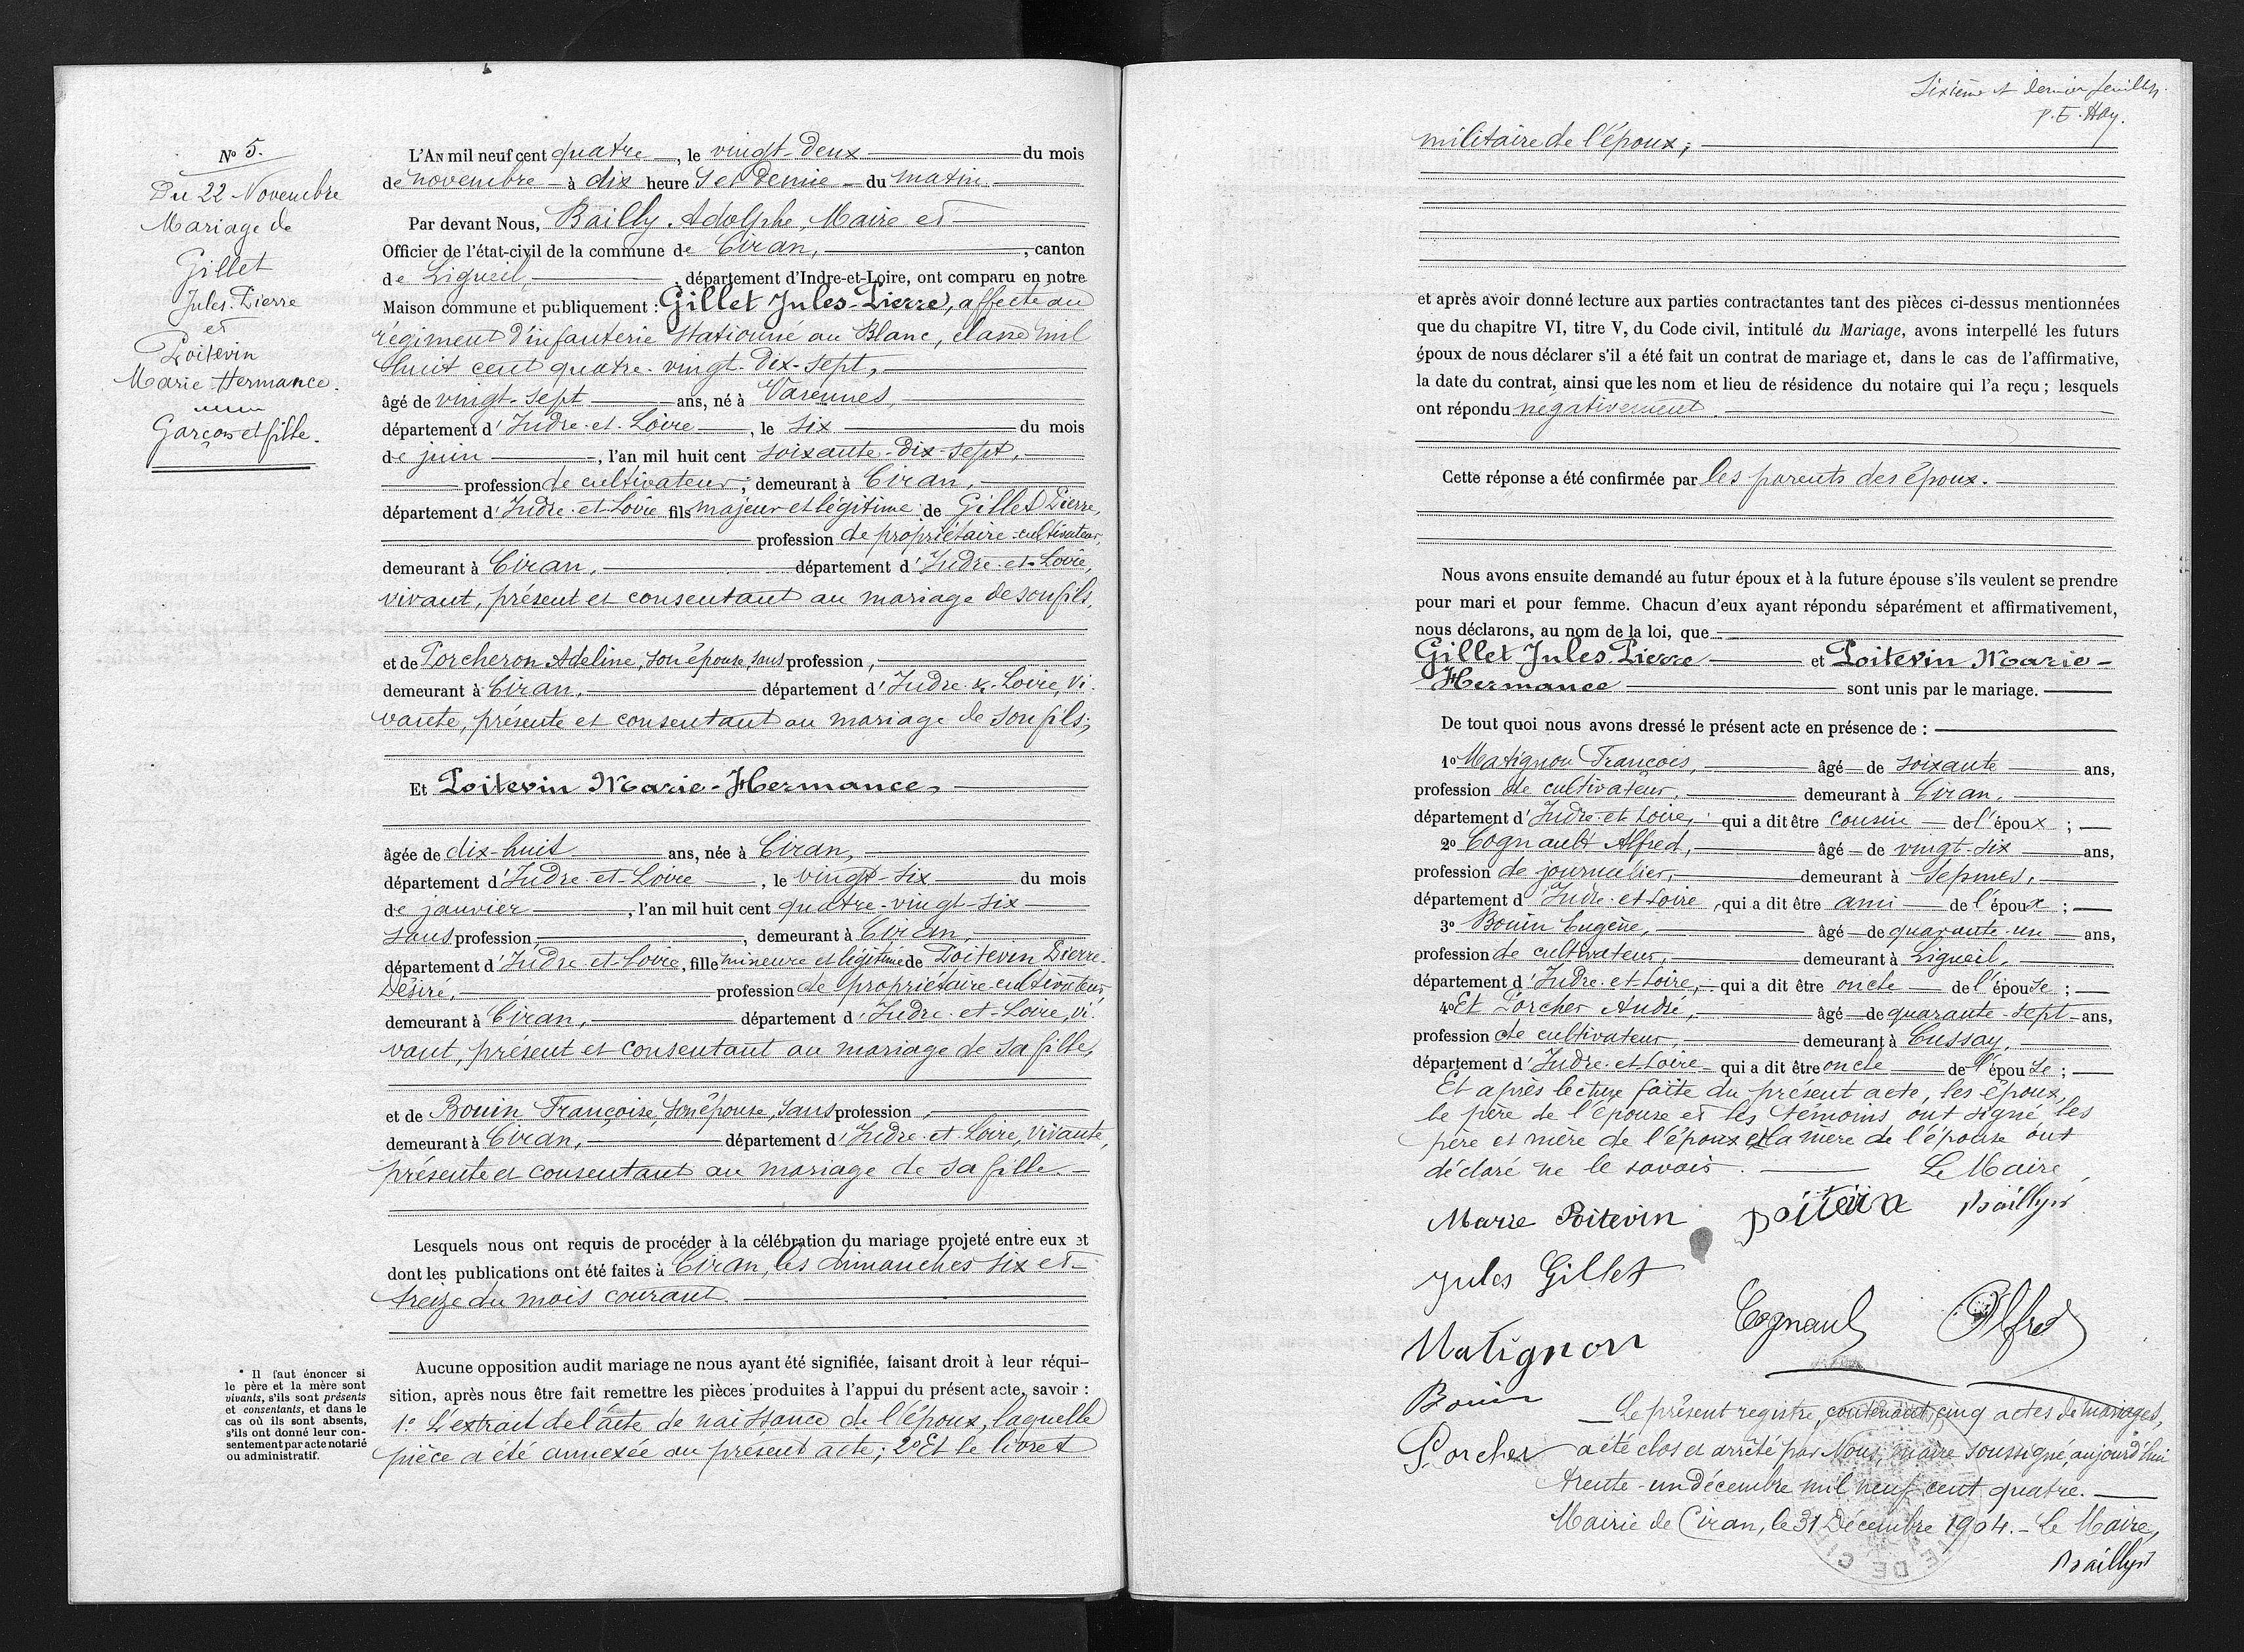 N° 5.
Du 22 Novembre
Mariage de
Gillet
Jules-Pierre
et
Poitevin
Marie Hermance.
Garçon et fille.
L'An mil neuf cent quatre, le vingt-deux du mois
de novembre à dix heures et demie du matin.
Par devant Nous, Bailly Adolphe, Maire et
Officier de l'état-civil de la commune de Ciran, canton
de Ligueil, département d'Indre-et-Loire, ont comparu en notre
Maison commune et publiquement : Gillet Jules-Pierre, affecté au
régiment d'infanterie stationné au Blanc, classe mil
huit cent quatre-vingt-dix-sept,
âgé de vingt-sept ans, né à Varennes,
département d'Indre-et-Loire, le six du mois
de juin, l'an mil huit cent soixante-dix-sept,
profession de cultivateur, demeurant à Ciran,
département d'Indre-et-Loire fils majeur et légitime de Gillet Pierre,
profession de propriétaire-cultivateur,
demeurant à Ciran, département d'Indre-et-Loire,
vivant, présent et consentant au mariage de son fils,
et de Porcheron Adeline, son épouse, sans profession,
demeurant à Ciran, département d'Indre & Loire, vi-
vante, présente et consentant au mariage de son fils;
Et Poitevin Marie-Hermance,
âgée de dix-huit ans, née à Ciran,
département d'Indre-et-Loire, le vingt-six du mois
de janvier, l'an mil huit cent quatre-vingt-six
sans profession, demeurant à Ciran,
département d'Indre-et-Loire, fille mineure et légitime de Poitevin Pierre-
Désiré, profession de propriétaire-cultivateur
demeurant à Ciran, département d'Indre-et-Loire, vi-
vant, présent et consentant au mariage de sa fille,
et de Bouin Françoise, son épouse, sans profession,
demeurant à Ciran, département d'Indre-et-Loire, vivante,
présente et consentant au mariage de sa fille
Lesquels nous ont requis de procéder à la célébration du mariage projeté entre eux et
dont les publications ont été faites à Ciran, les dimanches six et
treize du mois courant.
* Il faut énoncer si
le père et la mère sont
vivants, s'ils sont présents
et consentants, et dans le
cas où ils sont absents,
s'ils ont donné leur con-
sentement par acte notarié
ou administratif.
Aucune opposition audit mariage ne nous ayant été signifiée, faisant droit à leur réqui-
sition, après nous être fait remettre les pièces produites à l'appui du présent acte, savoir :
1° L'extrait de l'acte de naissance de l'époux, laquelle
pièce a été annexée au présent acte; 2° Et le livret
Sixième et dernier feuillet.
P. E. Hay.
militaire de l'époux;
et après avoir donné lecture aux parties contractantes tant des pièces ci-dessus mentionnées
que du chapitre VI, titre V, du Code civil, intitulé du Mariage, avons interpellé les futurs
époux de nous déclarer s'il a été fait un contrat de mariage et, dans le cas de l'affirmative,
la date du contrat, ainsi que les nom et lieu de résidence du notaire qui l'a reçu ; lesquels
ont répondu négativement.
Cette réponse a été confirmée par les parents des époux.
Nous avons ensuite demandé au futur époux et à la future épouse s'ils veulent se prendre
pour mari et pour femme. Chacun d'eux ayant répondu séparément et affirmativement,
nous déclarons, au nom de la loi, que
Gillet Jules Pierre et Poitevin Marie-
Hermance sont unis par le mariage.
De tout quoi nous avons dressé le présent acte en présence de :
1° Matignon François, âgé de soixante ans,
profession de cultivateur, demeurant à Ciran,
département d'Indre-et-Loire, qui a dit être cousin de l'époux ;
2° Cognault Alfred, âgé de vingt-six ans,
profession de journalier, demeurant à Sepmes,
département d'Indre-et-Loire, qui a dit être ami de l'époux ;
3° Bouin Eugène, âgé de quarante-un ans,
profession de cultivateur, demeurant à Ligueil,
département d'Indre-et-Loire, qui a dit être oncle de l'épouse ;
4° Et Porcher André, âgé de quarante-sept ans,
profession de cultivateur, demeurant à Cussay,
département d'Indre-et-Loire qui a dit être oncle de l'épouse ;
Et après lecture faite du présent acte, les époux,
le père de l'épouse et les témoins ont signé les
père et mère de l'époux et la mère de l'épouse ont
déclaré ne le savoir. Le Maire,
Marie Poitevin poitevin Bailly
Jules Gillet
Cognault Alfred
Matignon
Bouin
Porcher
Le présent registre, contenant cinq actes de mariages,
a été clos et arrêté par Nous, maire soussigné, aujourd'hui
trente-un décembre mil neuf cent quatre.
Mairie de Ciran, le 31 Décembre 1904. - Le Maire,
Bailly